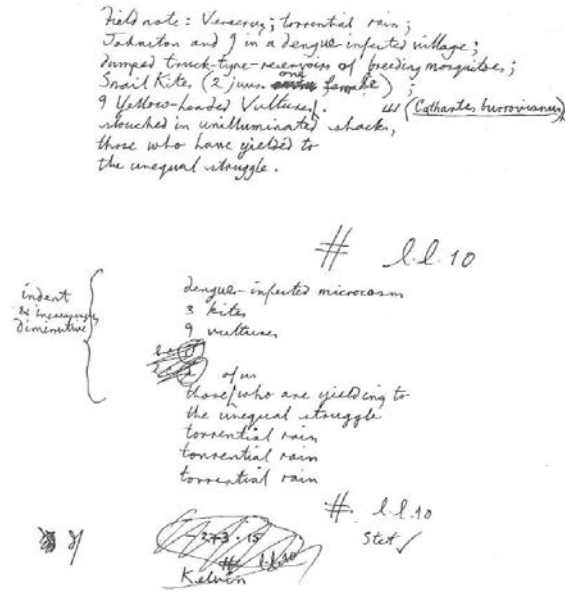 Field note: Veracruz; torrential rain;
Johnston and I in a dengue-infected village;
dumped truck-tyre-reservoirs of breeding mosquitoes;
Snail Kites (2 juvs. one female);
9 Yellow-headed Vultures (Cathartes burrovianus),
slouched in unilluminated shacks,
those who have yielded to
the unequal struggle.
# l.l. 10
indent
& increasingly
diminutive
dengue-infected microcosm
3 kites
9 vultures
of us
those who are yielding to
the unequal struggle
torrential rain
torrential rain
torrential rain
# l.l. 10
Stet ✓
273.15
# l.l. 10
Kelvin